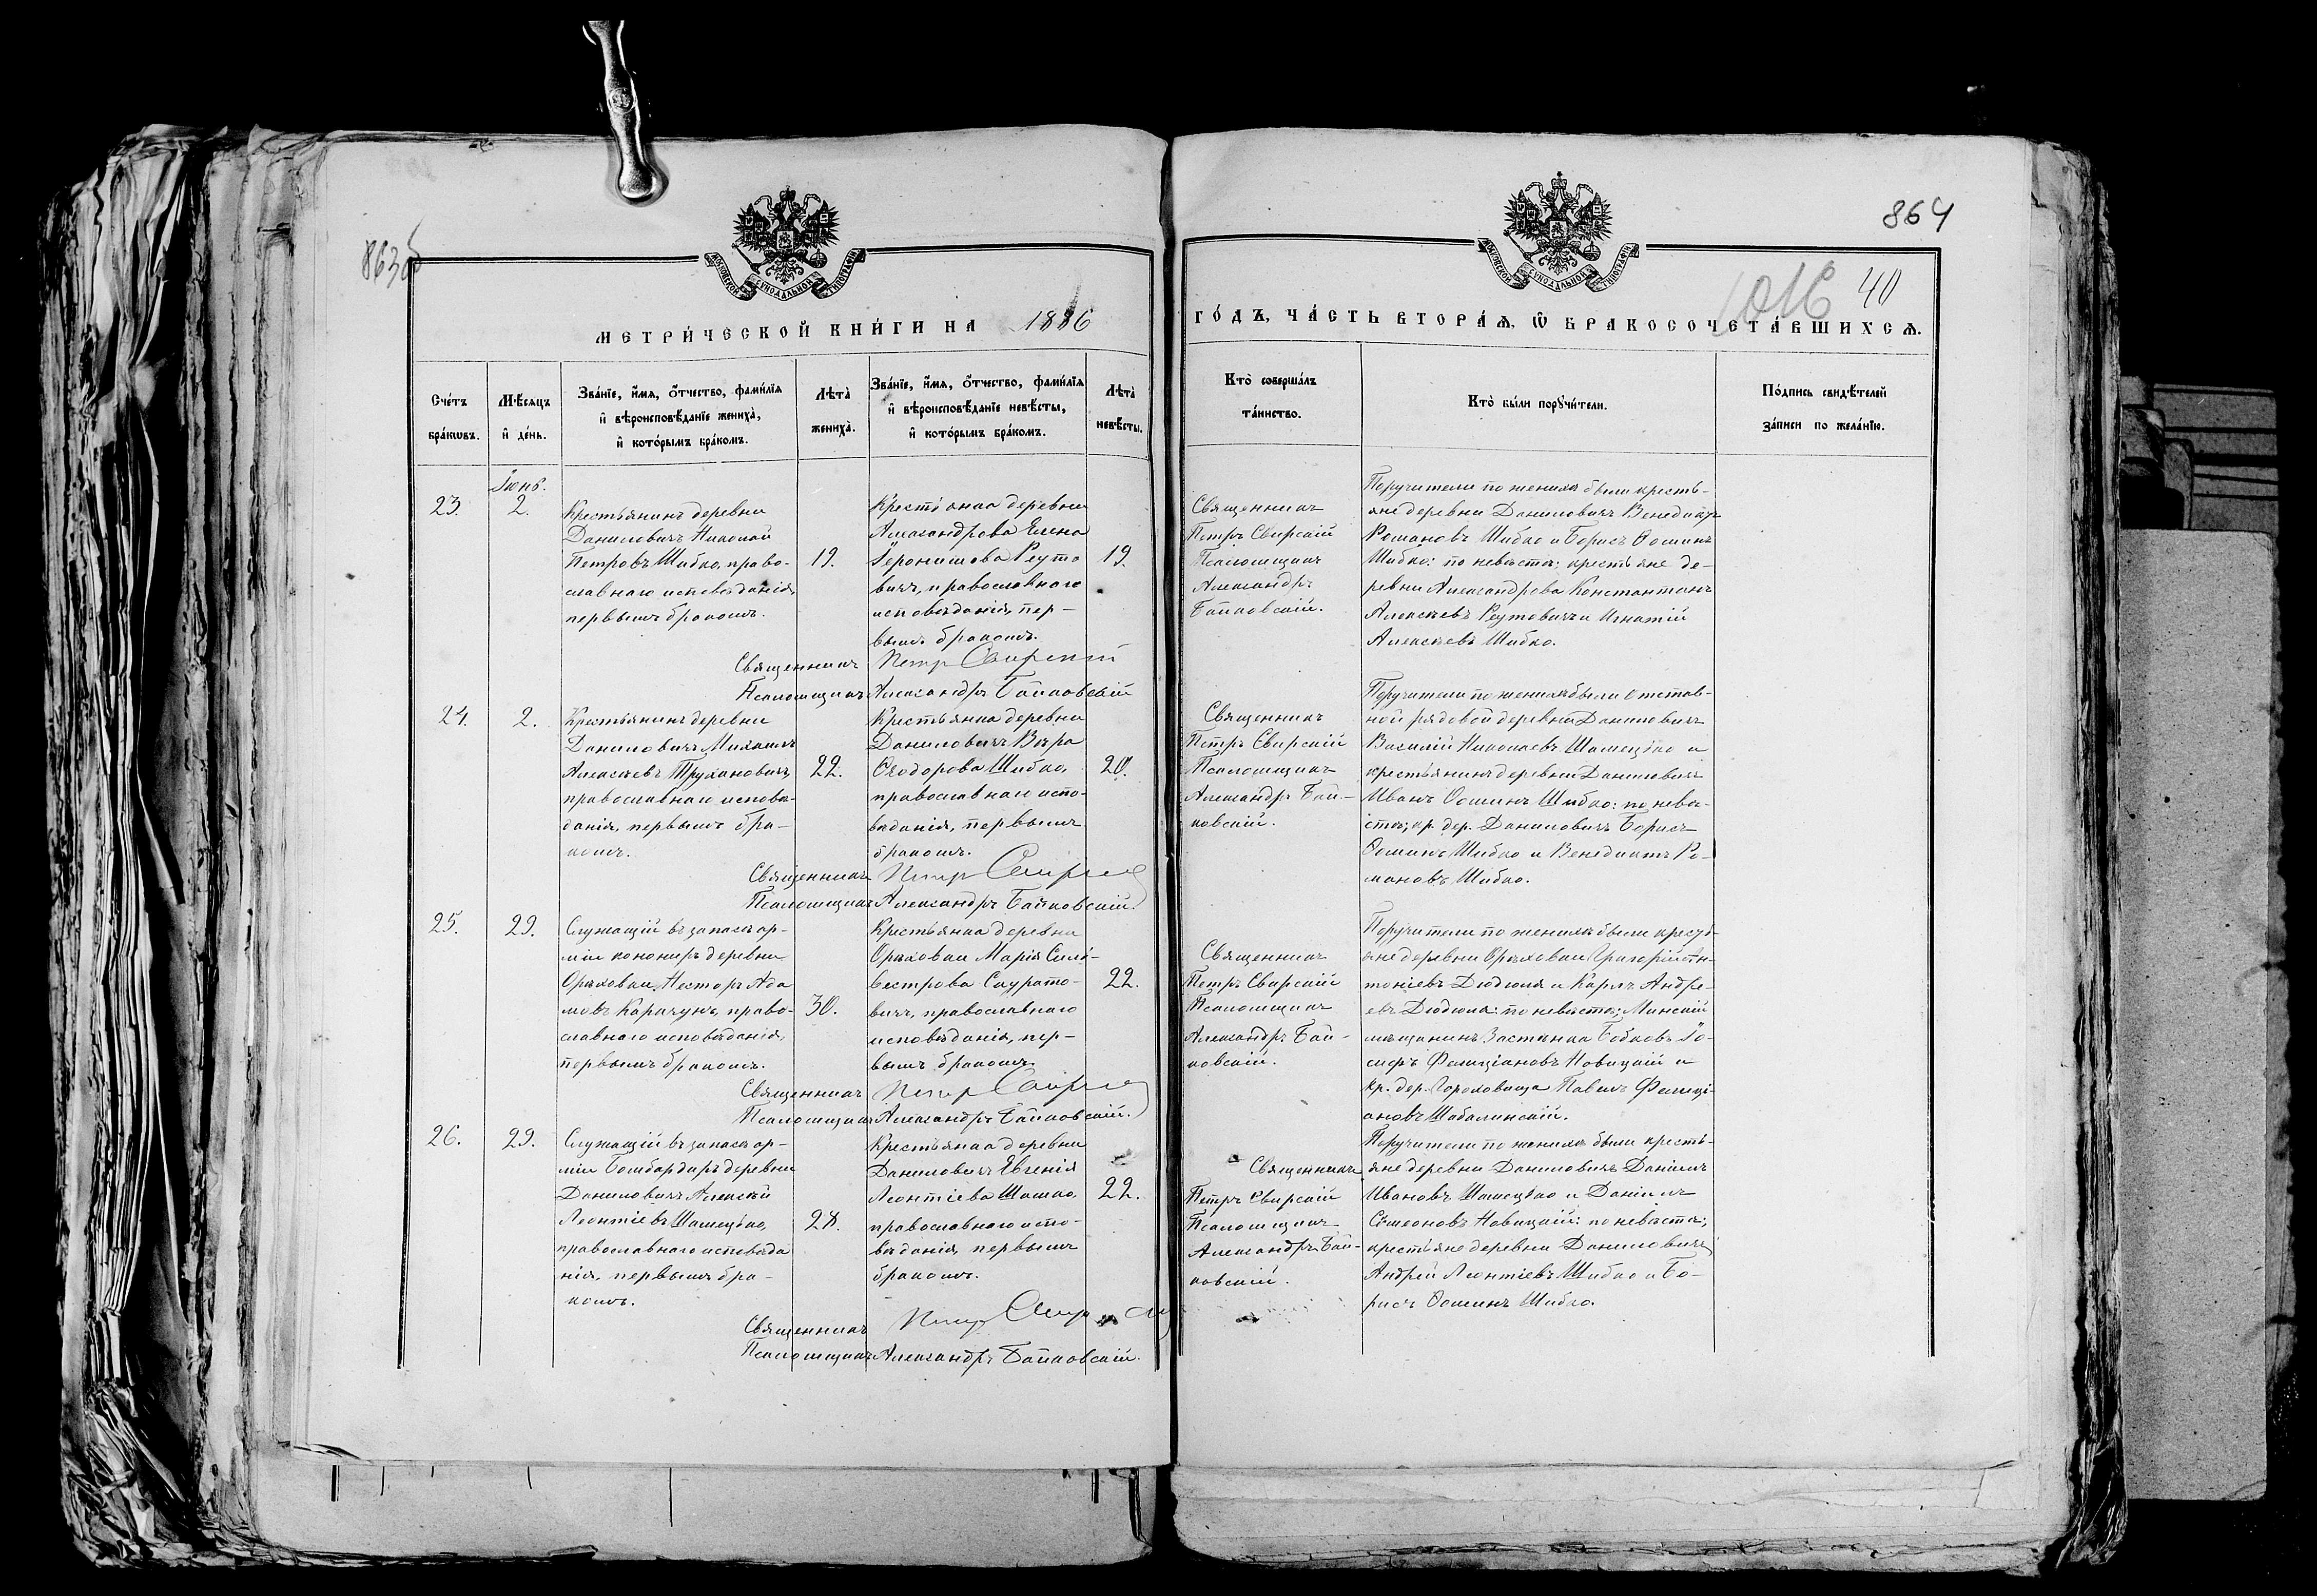 863об
864
1016 40
МОСКОВСКОЙ СѴНОДАЛЬНОЙ ТИПОГРАФІИ
МОСКОВСКОЙ СѴНОДАЛЬНОЙ ТИПОГРАФІИ
МЕТРИ́ЧЕСКОЙ КНИ́ГИ НА 1886
ГО́ДЪ, ЧА́СТЬ ВТОРА́Ѧ, Ѽ БРАКОСОЧЕТА́ВШИХСѦ.
Сче́тъ
бра́кѡвъ.
Мѣ́сяцъ
и҆ де́нь.
Зва́нїе, и҆́мя, ѻ҆́тчество, фами́лїя
и҆ вѣроисповѣ́данїе жениха̀,
и҆ кото́рымъ бра́комъ.
Лѣта̀
жениха̀.
Зва́нїе, и҆́мя, ѻ҆́тчество, фами́лїя
и҆ вѣроисповѣ́данїе невѣ́сты,
и҆ кото́рымъ бра́комъ.
Лѣта̀
невѣ́сты.
Кто̀ соверша́лъ
та́инство.
Кто̀ бы́ли порꙋчи́тели.
По́дпись свидѣ́телей
за́писи по жела́нїю.
Іюнь.
23.
2.
Крестьянинъ деревни
Даниловичъ Николай
Петровъ Шибко, право-
славнаго исповѣданія,
первымъ бракомъ.
19.
Крестьянка деревни
Александрова Елена
Іеронимова Реуто
вичъ, православнаго
исповѣданія, пер-
вымъ бракомъ.
19.
Священникъ
Петръ Свирскій
Псаломщикъ
Александръ
Байковскій.
Поручители по женихѣ были кресть-
яне деревни Даниловичъ Венедиктъ
Романовъ Шибко и Борисъ Ѳоминъ
Шибко: по невѣстѣ; крестьяне де-
ревни Александрова Константинъ
Алексѣевъ Реутовичъ и Игнатій
Алексѣевъ Шибко.
Священникъ Петр Свирский
Псаломщикъ Александръ Байковскій
24.
2.
Крестьянинъ деревни
Даниловичъ Михаилъ
Алексѣевъ Трухановичъ,
православнаго исповѣ-
данія, первымъ бра-
комъ.
22.
Крестьянка деревни
Даниловичъ Вѣра
Ѳеодорова Шибко,
православнаго испо-
вѣданія, первымъ
бракомъ.
20.
Священникъ
Петръ Свирскій
Псаломщикъ
Александръ Бай-
ковскій.
Поручители по женихѣ были отстав-
ной рядовой деревни Даниловичъ
Василій Николаевъ Шамецько и
крестьянинъ деревни Даниловичъ
Иванъ Ѳоминъ Шибко: по невѣ-
стѣ; кр. дер. Даниловичъ Борисъ
Ѳоминъ Шибко и Венедиктъ Ро-
мановъ Шибко.
Священникъ Петр Свирский
Псаломщикъ Александръ Байковскій.
25.
29.
Служащій въ запасѣ ар-
міи канониръ деревни
Орѣховки, Несторъ Ада
мовъ Карачунъ, право-
славнаго исповѣданія,
первымъ бракомъ.
30.
Крестьянка деревни
Орѣховки Марія Силь-
вестрова Саурато-
вичъ, православнаго
исповѣданія, пер-
вымъ бракомъ.
22.
Священникъ
Петръ Свирскій
Псаломщикъ
Александръ Бай-
ковскій.
Поручители по женихѣ были крестья-
яне деревни Орѣховки Григорій Ан-
тоніевъ Дюдюля и Карлъ Андре-
евъ Дюдюля: по невѣстѣ; Минскій
мѣщанинъ Застѣнка Бобковъ Іо-
сифъ Фелиціановъ Новицкій и
кр. дер. Гороховища Павелъ Фелици-
ановъ Шабалинскій.
Священникъ Петр Свирский
Псаломщикъ Александръ Байковскій.
26.
29.
Служащій въ запасѣ ар-
міи Бомбардиръ деревни
Даниловичъ Алексѣй
Леонтіевъ Шамецько,
православнаго исповѣда
нія, первымъ бра-
комъ.
28.
Крестьянка деревни
Даниловичъ Евгенія
Леонтіева Шашко,
православнаго испо-
вѣданія, первымъ
бракомъ.
22.
Священникъ
Петръ Свирскій
Псаломщикъ
Александръ Бай-
ковскій.
Поручители по женихѣ были кресть-
яне деревни Даниловичъ Даніилъ
Ивановъ Шамецько и Даніилъ
Симеоновъ Новицкій: по невѣстѣ;
крестьяне деревни Даниловичъ
Андрей Леонтіевъ Шибко и Бо-
рисъ Ѳоминъ Шибко.
Священникъ Петр Свирский
Псаломщикъ Александръ Байковскій.